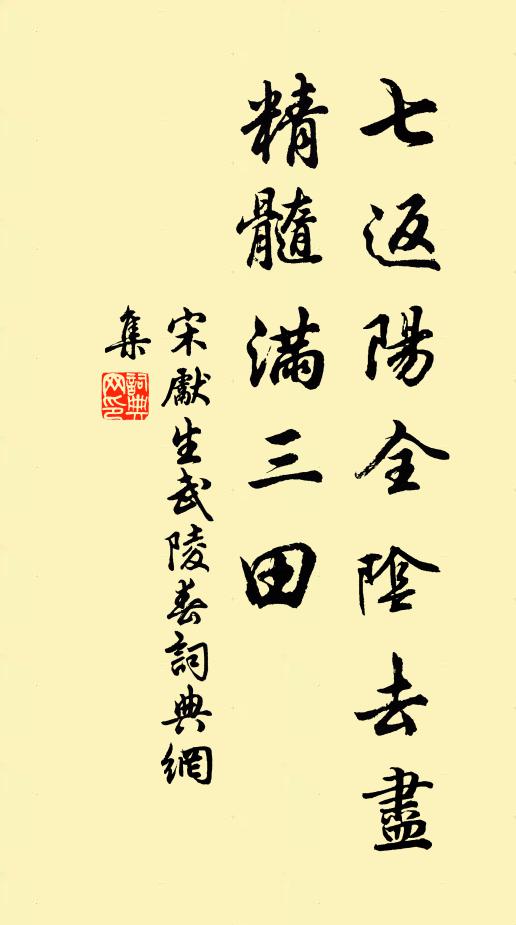 七返陽全陰去盡
精髓滿三田
宋獻生武陵春詞典網
集
詞典網印